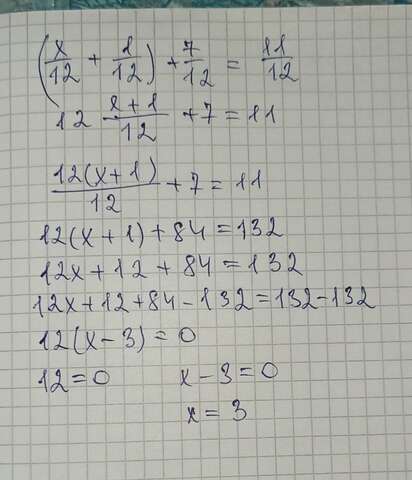 (x/12 + 1/12) + 7/12 = 11/12
12 x+1/12 + 7 = 11
12(x+1)/12 + 7 = 11
12(x+1) + 84 = 132
12x + 12 + 84 = 132
12x + 12 + 84 - 132 = 132 - 132
12(x - 3) = 0
12 = 0 x - 3 = 0
x = 3